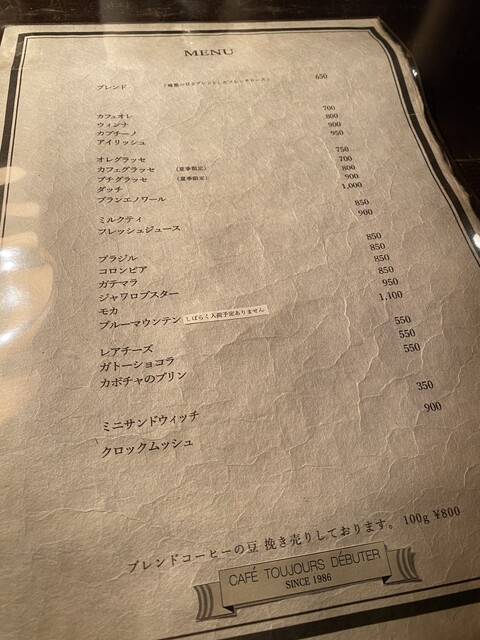 MENU
ブレンド 豆をブレンドしたフレンチロースト 650
カフェオレ 700
ウィンナ 800
カプチーノ 900
アイリッシュ 950
オレグラッセ 750
カフェグラッセ (夏季限定) 700
プチグラッセ (夏季限定) 800
ダッチ 900
ブランエノワール 1,000
ミルクティ 850
フレッシュジュース 900
ブラジル 850
コロンビア 850
ガテマラ 850
ジャワロブスター 850
モカ 950
ブルーマウンテン しばらく入荷予定ありません 1,100
レアチーズ 550
ガトーショコラ 550
カボチャのプリン 550
ミニサンドウィッチ 350
クロックムッシュ 900
ブレンドコーヒーの豆 挽き売りしております。 100g ¥800
CAFÉ TOUJOURS DÉBUTER
SINCE 1986